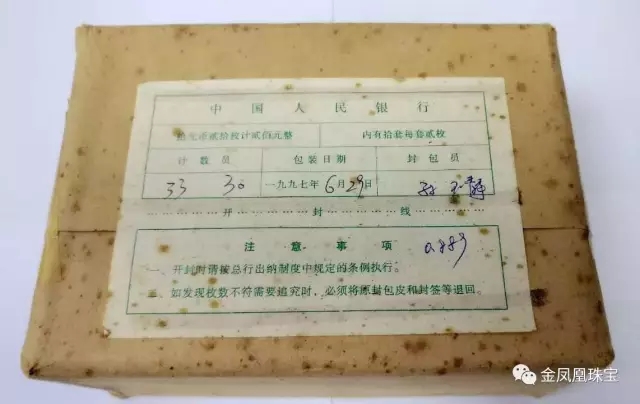 中国人民银行
纪念币贰拾枚计贰佰元整 内有拾套每套贰枚
计数员 包装日期 封包员
33 30 一九九七年6月29日
开 封 线
注意事项 0.889
一、开封时请按总行出纳制度中规定的条例执行。
二、如发现枚数不符需要追究时，必须将原封包皮和封签等退回。
金凤凰珠宝